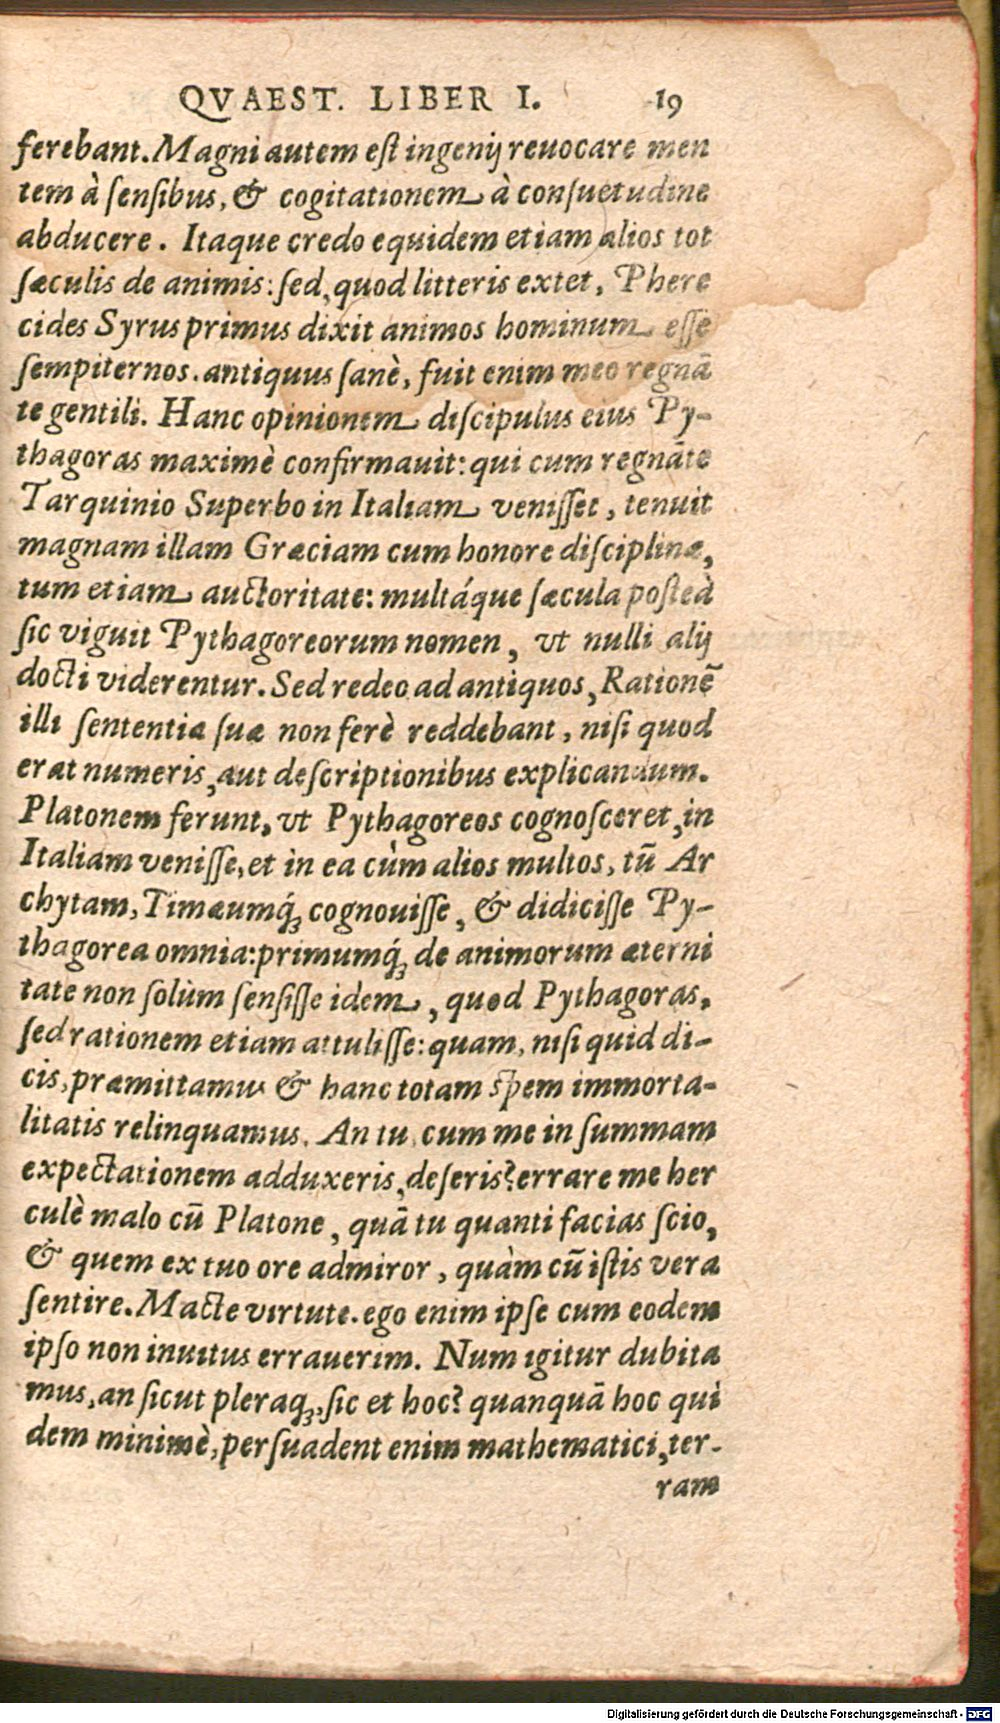 QVAEST. LIBER I. 19
ferebant. Magni autem eſt ingenij reuocare men
tem à ſenſibus, & cogitationem à conſuetudine
abducere. Itaque credo equidem etiam alios tot
ſæculis de animis: ſed, quod litteris extet, Phere
cides Syrus primus dixit animos hominum eſſe
ſempiternos. antiquus ſanè, fuit enim meo regnā
te gentili. Hanc opinionem diſcipulus eius Py-
thagoras maximè confirmauit: qui cum regnāte
Tarquinio Superbo in Italiam veniſſet, tenuit
magnam illam Græciam cum honore diſciplinæ,
tum etiam auctoritate: multáque ſæcula poſteà
ſic viguit Pythagoreorum nomen, vt nulli alij
docti viderentur. Sed redeo ad antiquos, Rationē
illi ſententiæ ſuæ non ferè reddebant, niſi quod
erat numeris, aut deſcriptionibus explicandum.
Platonem ferunt, vt Pythagoreos cognoſceret, in
Italiam veniſſe, et in ea cùm alios multos, tū Ar
chytam, Timæumq́; cognouiſſe, & didiciſſe Py-
thagorea omnia: primumq́; de animorum æterni
tate non ſolùm ſenſiſſe idem, quod Pythagoras,
ſed rationem etiam attuliſſe: quam, niſi quid di-
cis, præmittamus & hanc totam ſpem immorta-
litatis relinquamus. An tu cum me in ſummam
expectationem adduxeris, deſeris? errare me her
culè malo cū Platone, quā tu quanti facias ſcio,
& quem ex tuo ore admiror, quàm cū iſtis vera
ſentire. Macte virtute. ego enim ipſe cum eodem
ipſo non inuitus errauerim. Num igitur dubita
mus, an ſicut pleraq;, ſic et hoc? quanquā hoc qui
dem minimè, perſuadent enim mathematici, ter-
ram
Digitalisierung gefördert durch die Deutsche Forschungsgemeinschaft - DFG